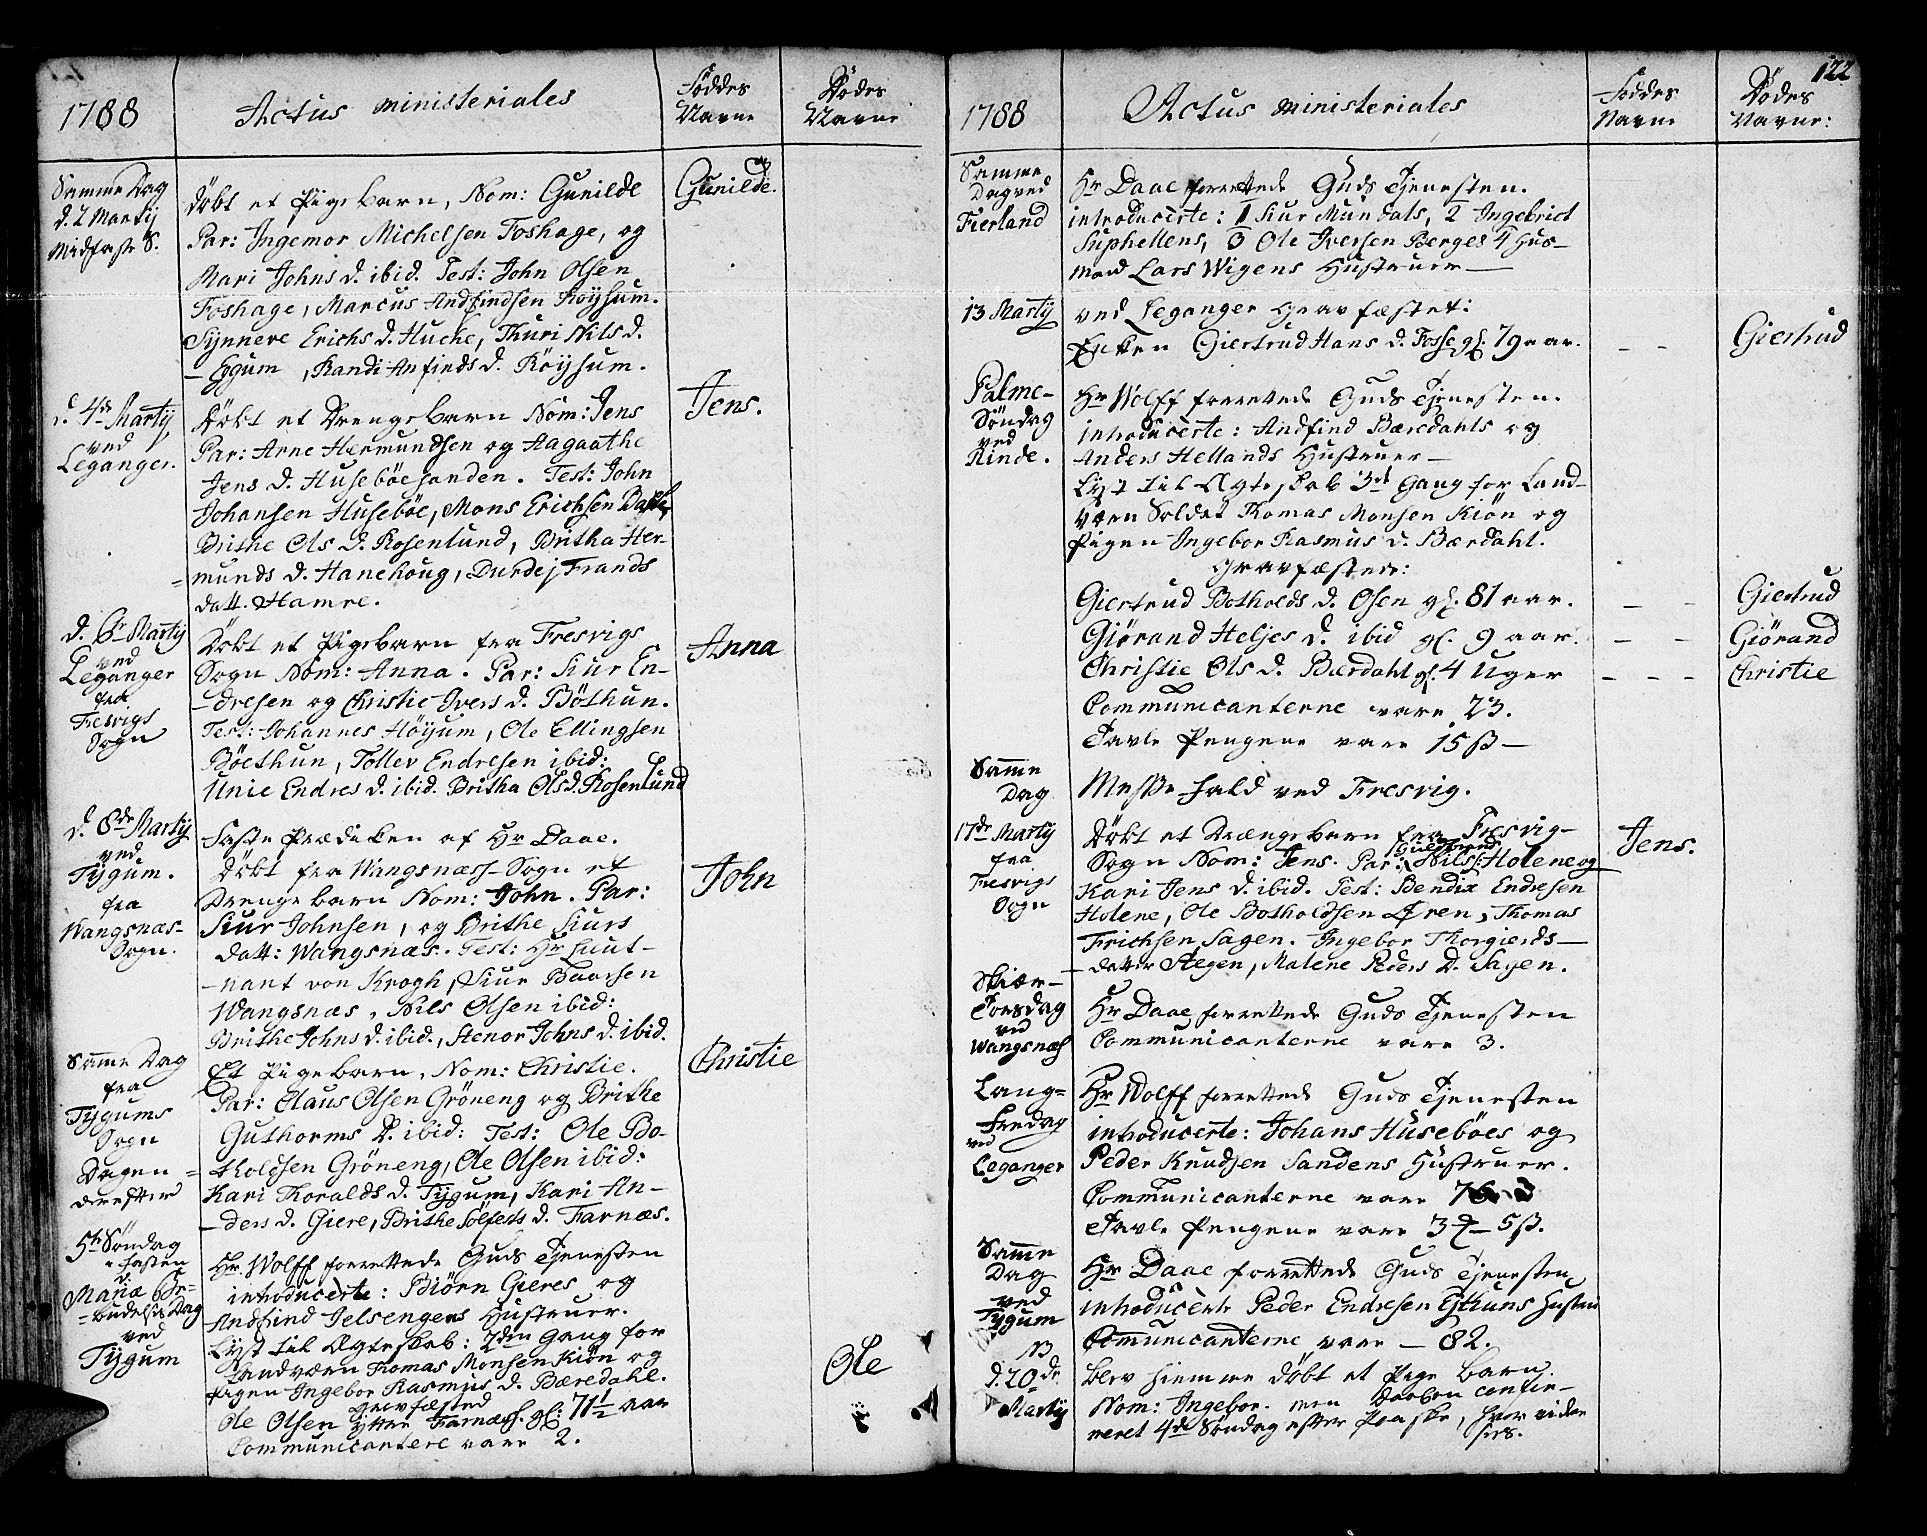 1788
Actus ministeriales
Föddes Navne
Dödes Navne
Samme Dag
d. 2 Martij
Midfaste S.
Döbt et Pigebarn, Nom: Gunilde
Par: Ingemor Michelsen Foshage, og
Kari Johns d. ibid. Test: John Olsen
Foshage, Marcus Andfindsen Röysum.
Synneve Erichs d. Huche, Thuri Nils d.
Eggum, Randi Anfinds d. Röysum.
Gunilde.
d. 4de Martij
ved
Leganger.
Döbt et Drengebarn Nom: Jens
Par: Arne Hermundsen og Aagaathe
Jens d. Huseböesanden. Test: John
Johansen Huseböe, Mons Erichsen
Brithe Ols d. Rosenlund, Britha Her-
munds d. Hanehoug, Durdej Frands
datt. Hamre.
Jens.
d. 6te Martij
ved
Leganger
fra
Fresvigs
Sogn
Döbt et Pigebarn fra Fresvigs
Sogn Nom: Anna. Par: Siur En-
-dresen og Christie Ivers d. Böthun.
Test: Johannes Höyum, Ole Ellingsen
Böethun, Tollev Endresen ibid:
Unie Endres d. ibid. Britha Ols d. Rosenlund
Anna
d. 8de Martij
ved
Tygum.
fra
Wangsnæs-
Sogn.
Faste Prædiken af Hr Daae.
Döbt fra Wangsnæss-Sogn et
Drengebarn Nom: John. Par:
Siur Johnsen, og Brithe Siurs
datt: Wangsnæs. Test: Hr Luut-
-nant von Krogh, Siur Baarsen
Wangsnæs, Nils Olsen ibid:
Brithe Johns d. ibid., Stenor Johns d. ibid.
John
Samme Dag
fra
Tygums
Sogn
Et Pigebarn, Nom: Christie.
Par: Claus Olsen Gröneng og Brithe
Guthorms d. ibid: Test: Ole Bo-
tholdsen Gröneng, Ole Olsen ibid:
Kari Thoralds d. Tygum, Kari An-
-ders d. Giere, Brithe Sölfests d. Farnæs.
Christie
Dagen
derefter
5te Söndag
i Fasten
Mariæ Be-
-budelses Dag
ved
Tygum
Hr Wolff forrettede Guds Tjenesten
introducerte: Biörn Gieres og
Andfind Jelsengens Hustruer.
Lyst til Ægteskab: 2den Gang for
Landværn Thomas Monsen Kiön og
Pigen Ingebor Rasmus d. Bæredahl.
gravfæsted
Ole Olsen Yttre Farnæss. gl: 71 1/2 aar
Communicantere vare 2.
Ole
1788
Actus ministeriales
Föddes Navne
Dödes Navne:
122
Samme
Dag ved
Fierland
Hr Daae forrettede Guds Tjenesten.
introducerte: 1 Siur Mundals, 2 Ingebrict
Suphellens, 3 Ole Iversen Berges 4 Hus-
mand Lars Wigens Hustruer
13 Martij
ved Leganger gravfæstet:
Enken Giertrud Hans d. Fosse gl. 79 aar.
Giertrud
Palme-
Söndag
ved
Rinde.
Hr Wolff forrettede Guds Tjenesten.
introducerte: Andfind Bæredahls og
Anders Hellands Hustruer
Lyst til Ægteskab 3de Gang for Land-
værn Soldat Thomas Monsen Kiön og
Pigen Ingebor Rasmus d. Bærdahl.
gravfæstede:
Giertrud Botholds d. Osen gl. 81 aar.
Giörand Heljes d. ibid gl. 9 aar.
Christie Ols d. Bærdahl gl. 4 Uger
Communicanterne vare 23.
Tavle Pengene vare 15 ß
Giertrud
Giörand
Christie
Samme
Dag
Messe-Fald ved Fresvig.
17de Martij
fra
Fresvigs
Sogn
Döbt et Drænge barn fra Fresvig-
Sogn Nom: Jens. Par: Nils: Holene og
Kari Jens d. ibid. Test: Bendix Endresen
Holene, Ole Botholdsen Øren, Thomas
Erichsen Sagen. Ingebor Thorgierds
datter Aegen, Malene Peders d. Sagen.
Jens.
Skiær-
Torsdag
ved
Wangsnæs
Hr Daae forrettede Guds Tjenesten
Communicanterne vare 3.
Lang-
Fredag
ved
Leganger
Hr Wolff forrettede Guds Tjenesten
introducerte: Johans Huseböes og
Peder Knudsen Sandens Hustruer.
Communicanterne vare
Tavle Pengene vare 3 - 5 ß.
Samme
Dag
ved
Tygum
Hr Daae forrettede Guds Tjenesten
introducerte Peder Endresen Hustru
Communicanterne vare - 82.
d. 20de
Martij
blev hiemme döbt et Pige barn
Nom: Ingebor. men Daaben confir-
meret 4de Söndag efter Paaske, hvor viden